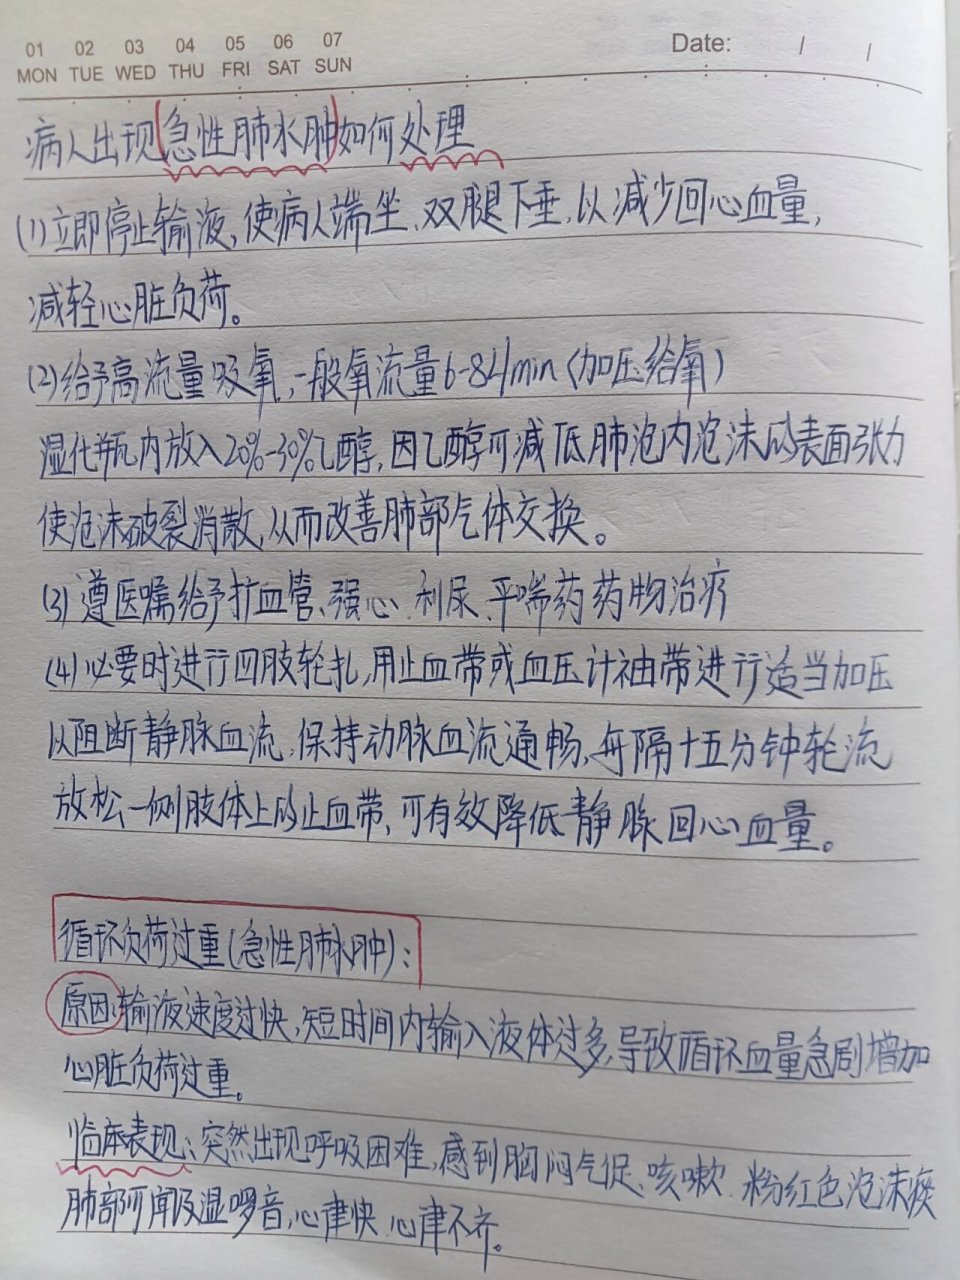 01 02 03 04 05 06 07
MON TUE WED THU FRI SAT SUN
Date: / /
病人出现(急性肺水肿)如何处理
(1)立即停止输液,使病人端坐、双腿下垂,以减少回心血量,
减轻心脏负荷。
(2)给予高流量吸氧,一般氧流量6-8L/min(加压给氧)
湿化瓶内放入20%-30%乙醇,因乙醇可减低肺泡内泡沫的表面张力
使泡沫破裂消散,从而改善肺部气体交换。
(3)遵医嘱给予扩血管、强心、利尿、平喘药药物治疗
(4)必要时进行四肢轮扎,用止血带或血压计袖带进行适当加压
以阻断静脉血流,保持动脉血流通畅,每隔十五分钟轮流
放松一侧肢体上的止血带,可有效降低静脉回心血量。
循环负荷过重(急性肺水肿):
原因:输液速度过快,短时间内输入液体过多,导致循环血量急剧增加
心脏负荷过重。
临床表现:突然出现呼吸困难,感到胸闷气促、咳嗽、粉红色泡沫痰
肺部可闻及湿啰音,心律快、心律不齐。